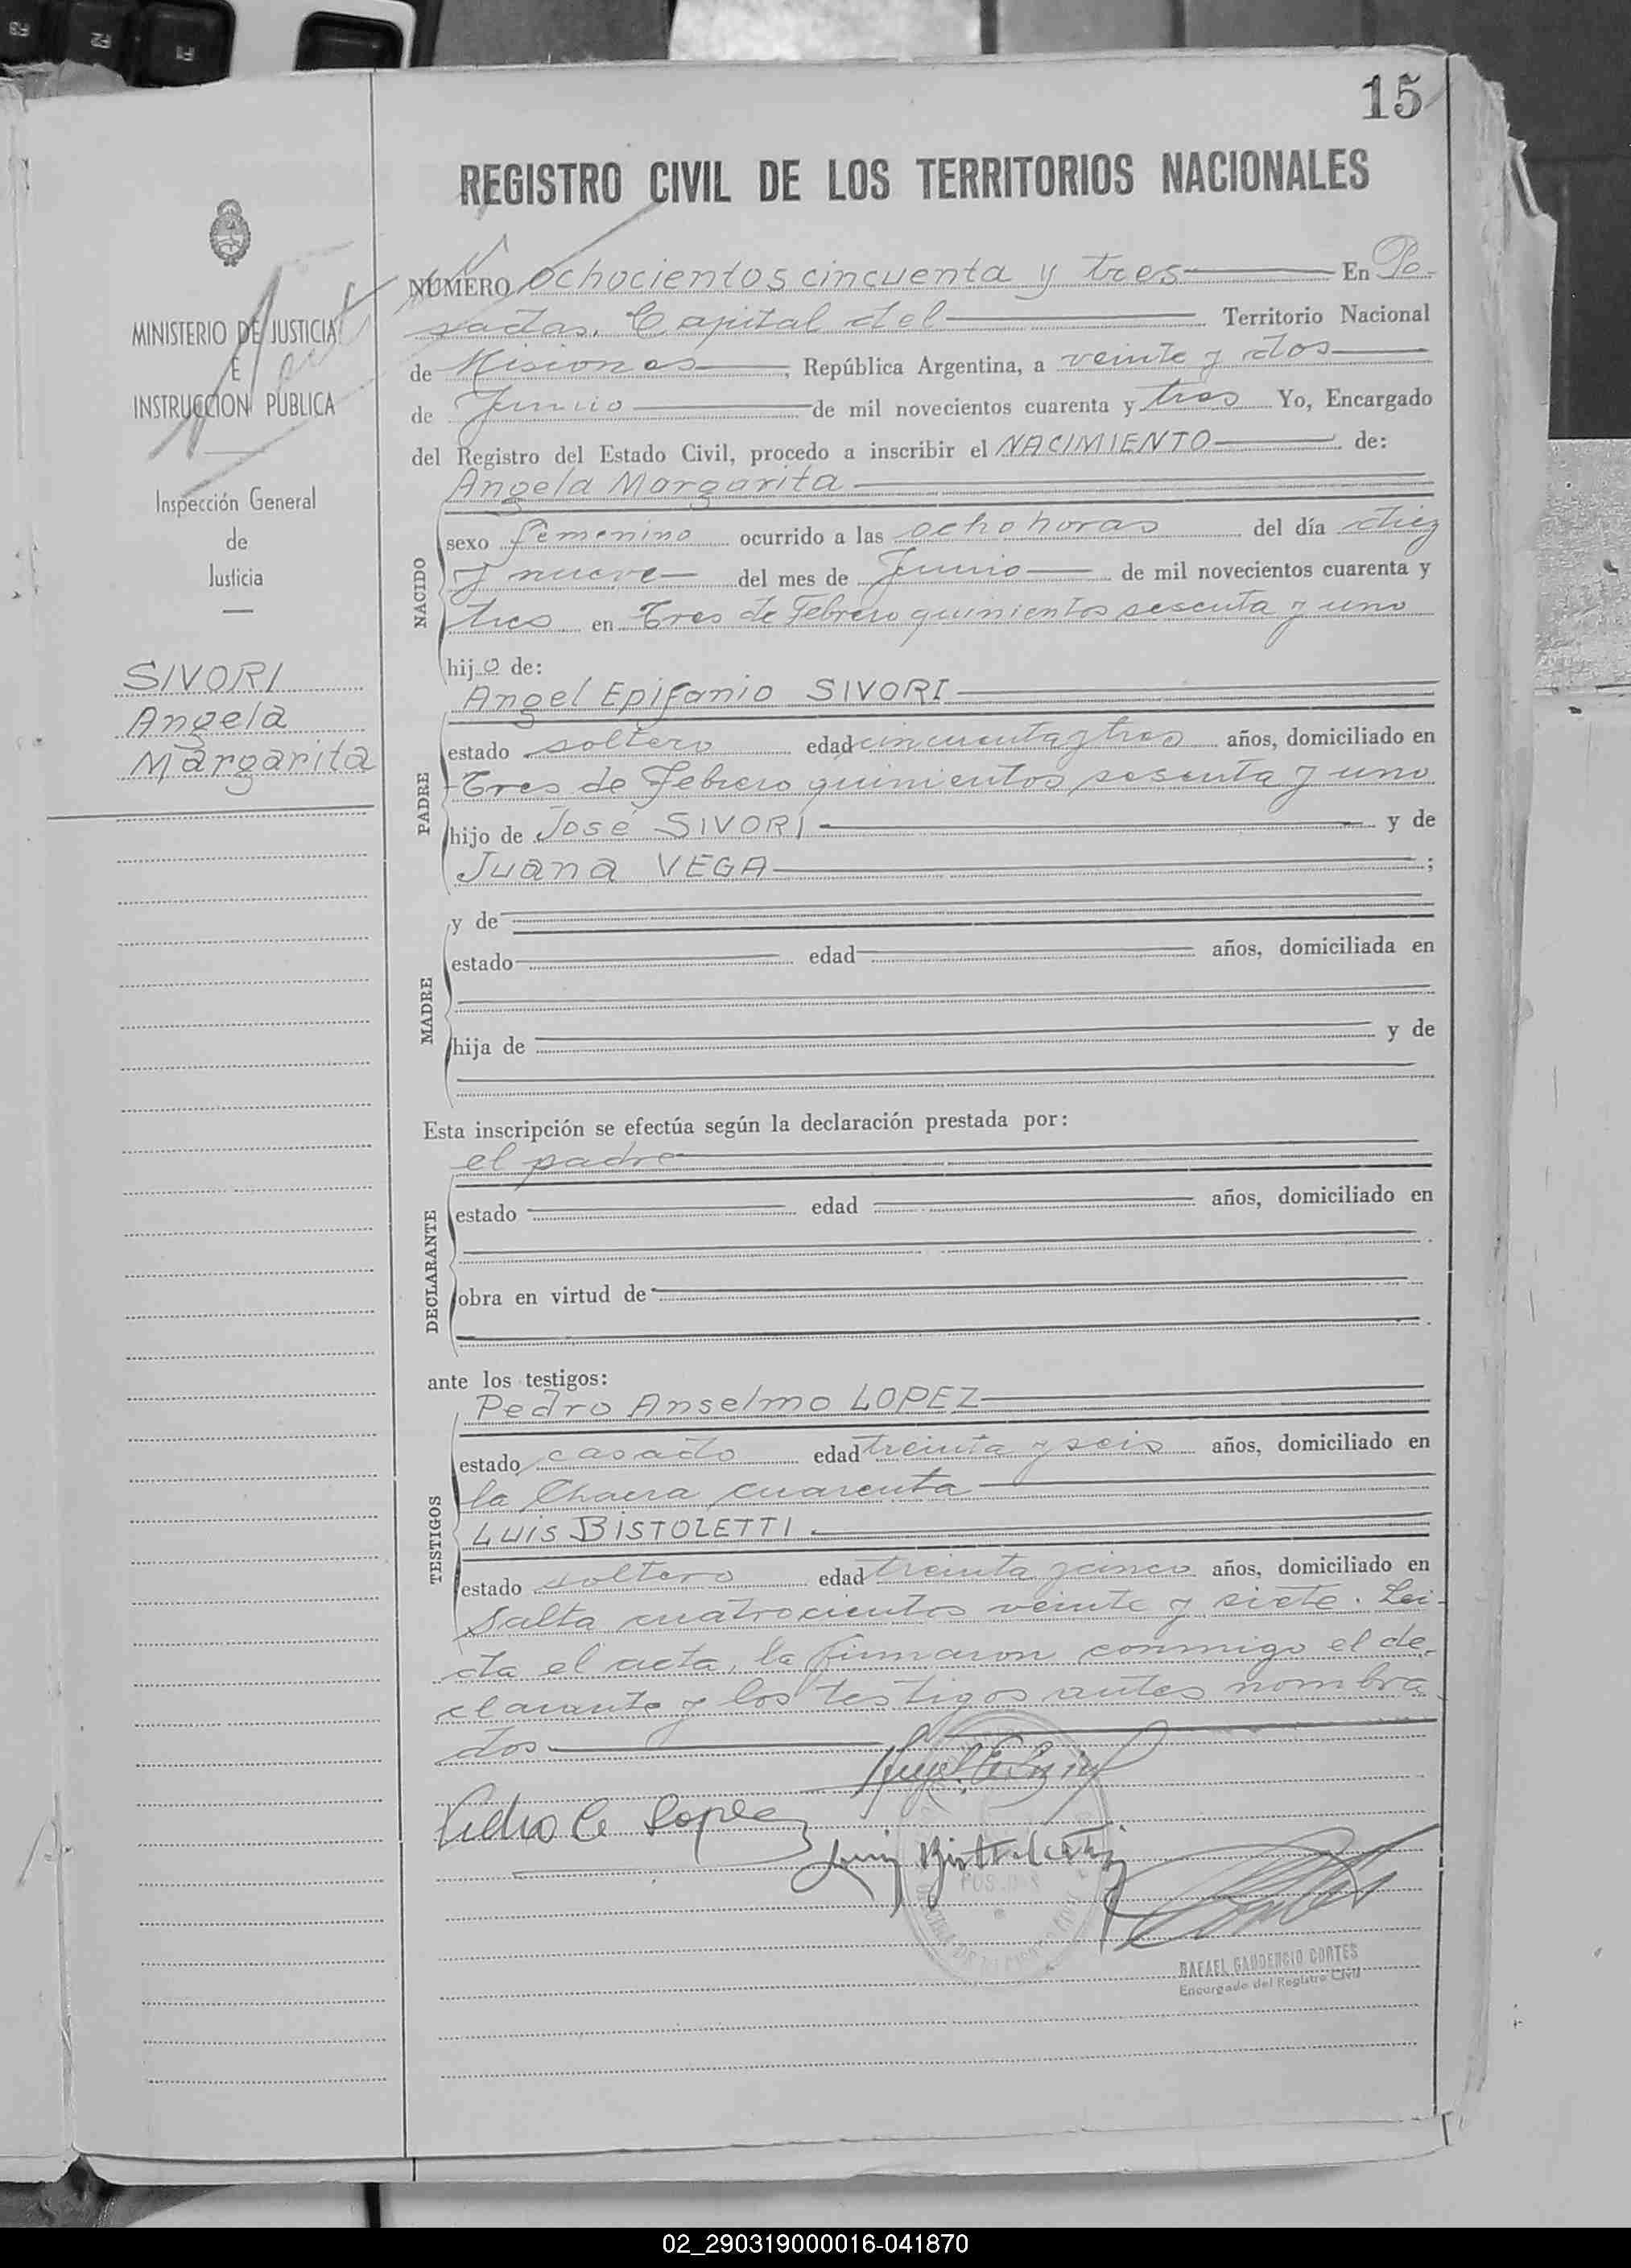 F3 F2 F1
15
REGISTRO CIVIL DE LOS TERRITORIOS NACIONALES
MINISTERIO DE JUSTICIA
E
INSTRUCCION PUBLICA
Inspección General
de
Justicia
SIVORI
Angela
Margarita
NÚMERO ochocientos cincuenta y tres En Po-
sadas, Capital del Territorio Nacional
de Misiones, República Argentina, a veinte y dos
de Junio de mil novecientos cuarenta y tres Yo, Encargado
del Registro del Estado Civil, procedo a inscribir el NACIMIENTO de:
NACIDO
Angela Margarita
sexo femenino ocurrido a las ocho horas del día diez
y nueve del mes de Junio de mil novecientos cuarenta y
tres en Tres de Febrero quinientos sesenta y uno
hijo de:
PADRE
Angel Epifanio SIVORI
estado soltero edad cincuenta y tres años, domiciliado en
Tres de Febrero quinientos sesenta y uno
hijo de José SIVORI y de
Juana VEGA ;
MADRE
y de
estado edad años, domiciliada en
hija de y de
Esta inscripción se efectúa según la declaración prestada por:
DECLARANTE
el padre
estado edad años, domiciliado en
obra en virtud de
ante los testigos:
TESTIGOS
Pedro Anselmo LOPEZ
estado casado edad treinta y seis años, domiciliado en
la Chacra cuarenta
Luis BISTOLETTI
estado soltero edad treinta y cinco años, domiciliado en
Salta cuatrocientos veinte y siete. Lei-
da el acta, la firmaron conmigo el de-
clarante y los testigos antes nombra-
dos
Pedro A Lopez
Luis Bistoletti
POSADAS
RAFAEL GAUDENCIO CORTES
Encargado del Registro Civil
02_290319000016-041870